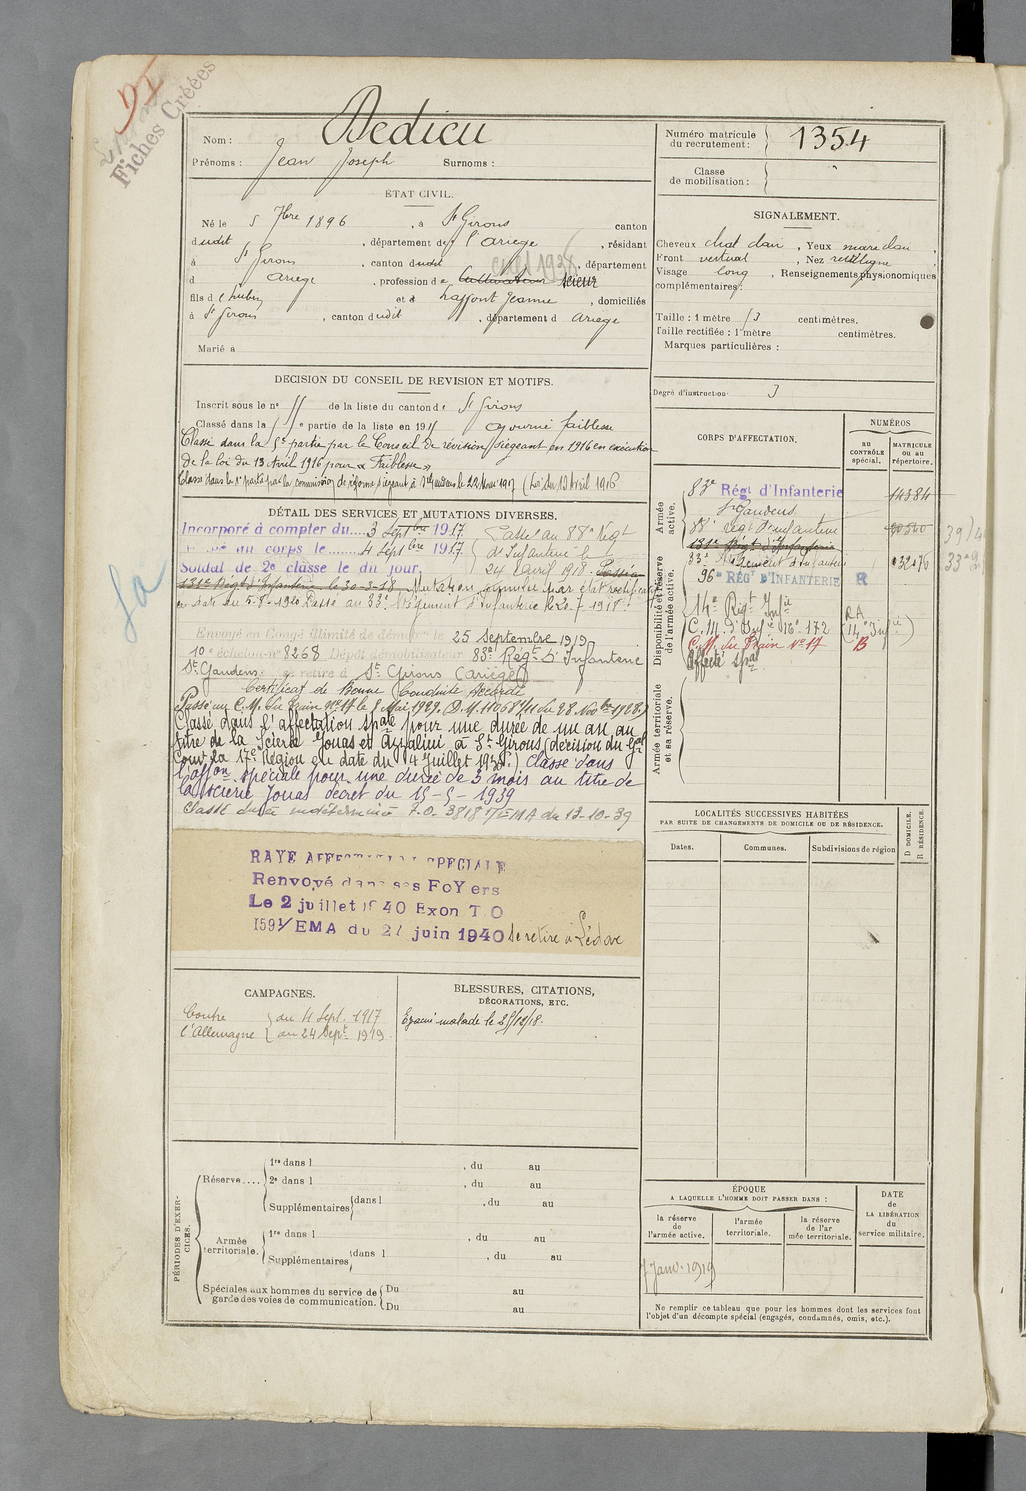 Fiches Créées
Nom : Dedieu
Prénoms : Jean Joseph Surnoms :
Numéro matricule du recrutement : 1354
Classe de mobilisation :
ETAT CIVIL.
Né le 5 7bre 1896, à St Girons canton
dudit, département de l'Ariege, résidant
à St Girons, canton dudit, département
d Ariege, profession de Cultivateur scieur
fils d et d Laffont Jeanne, domiciliés
à St Girons, canton dudit, département d Ariege
Marié à
SIGNALEMENT.
Cheveux chat clair, Yeux
Front vertical, Nez rectiligne
Visage long, Renseignements physionomiques
complémentaires :
Taille : 1 mètre centimètres.
Taille rectifiée : 1 mètre centimètres.
Marques particulières :
Degré d'instruction : 3
DECISION DU CONSEIL DE REVISION ET MOTIFS.
Inscrit sous le n° de la liste du canton de St Girons
Classé dans la 5e partie de la liste en 191 ajourné faiblesse
Classé dans la 5e partie par le Conseil de révision siégeant en 1916 en exécution
de la loi du 13 Avril 1916 pour « Faiblesse »
Classé dans la 1e partie par la commission de réforme siégeant à St Gaudens le 22 1917 (Loi du 13 Avril 1916
CORPS D'AFFECTATION.
NUMÉROS
au CONTRÔLE spécial.
MATRICULE ou au répertoire.
Armée active.
83e Régt d'Infanterie 14384
St Gaudens
88e régt d'infanterie
131e Régt d'Infanterie
Disponibilité et réserve de l'armée active.
33e Régiment d'Infanterie
96e RÉGt D'INFANTERIE R
14e Régt Infie
C.M. d'Infie N° 172
C.M. du Train N° 17 B
Affecté spal
Armée territoriale et sa réserve.
DÉTAIL DES SERVICES ET MUTATIONS DIVERSES.
Incorporé à compter du 3 Septbre 1917
au corps le 4 Septbre 1917
Soldat de 2e classe le du jour
Passé au 88e Régt
d'Infanterie le
24 Avril 1918. Passé au
131e Régt d'Infanterie le 30-3-18. Mutation annulée par état rectificatif
en date du 5-8-1920 Passé au 33e Régiment d'Infanterie le 20-7-1918.
Envoyé en Congé illimité de démob le 25 Septembre 1919
10e échelon n° 8268 Dépôt démobilisateur 83e Régt d'Infanterie
St Gaudens se retire à St Girons (Ariège)
Certificat de Bonne Conduite Accordé
Passé au C.M. du Train N° 17 le 8 Mai 1929. (D.M. 11068 du 28 Novbre 1928.)
Classé dans l'affectation spale pour une durée de un an au
titre de la Scierie Jouas et à St Girons (décision du Gal
Couv. la 17e Région en date du 4 Juillet 193 ) Classé dans
l'affon spéciale pour une durée de 3 mois au titre de
la scierie Jouas décret du 15-5-1939
Classé indéterminé T.O. 3818 /EMA du 13-10-39
RAYE AFFECTATION SPECIALE
Renvoyé dans ses FoYers
Le 2 juillet 1940 Exon T.O
1591/EMA du 2 juin 1940 se retire à Lédar
CAMPAGNES.
Contre l'Allemagne
du 4 Sept. 1917
au 24 Sept. 1919
BLESSURES, CITATIONS,
DÉCORATIONS, ETC.
Evacué malade le 25/12/18.
LOCALITÉS SUCCESSIVES HABITÉES
PAR SUITE DE CHANGEMENTS DE DOMICILE OU DE RÉSIDENCE.
Dates. Communes. Subdivisions de région D DOMICILE. R RÉSIDENCE.
PÉRIODES D'EXERCICES.
Réserve....
1re dans l , du au
2e dans l , du au
Supplémentaires dans l , du au
Armée territoriale.
1re dans l , du au
Supplémentaires dans l , du au
Spéciales aux hommes du service de garde des voies de communication.
Du au
Du au
ÉPOQUE
A LAQUELLE L'HOMME DOIT PASSER DANS :
la réserve de l'armée active.
l'armée territoriale.
la réserve de l'armée territoriale.
DATE DE LA LIBÉRATION du service militaire.
Janv. 1919
Ne remplir ce tableau que pour les hommes dont les services font
l'objet d'un décompte spécial (engagés, condamnés, omis, etc.).